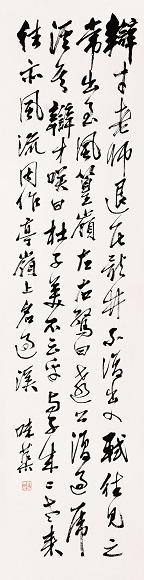 辯才老師退居龍井不復出入軾往見之
常出至風篁嶺左右驚曰遠公復過虎
溪矣辯才咲曰杜子美不云乎與子成二老來
往亦風流因作亭嶺上名過溪